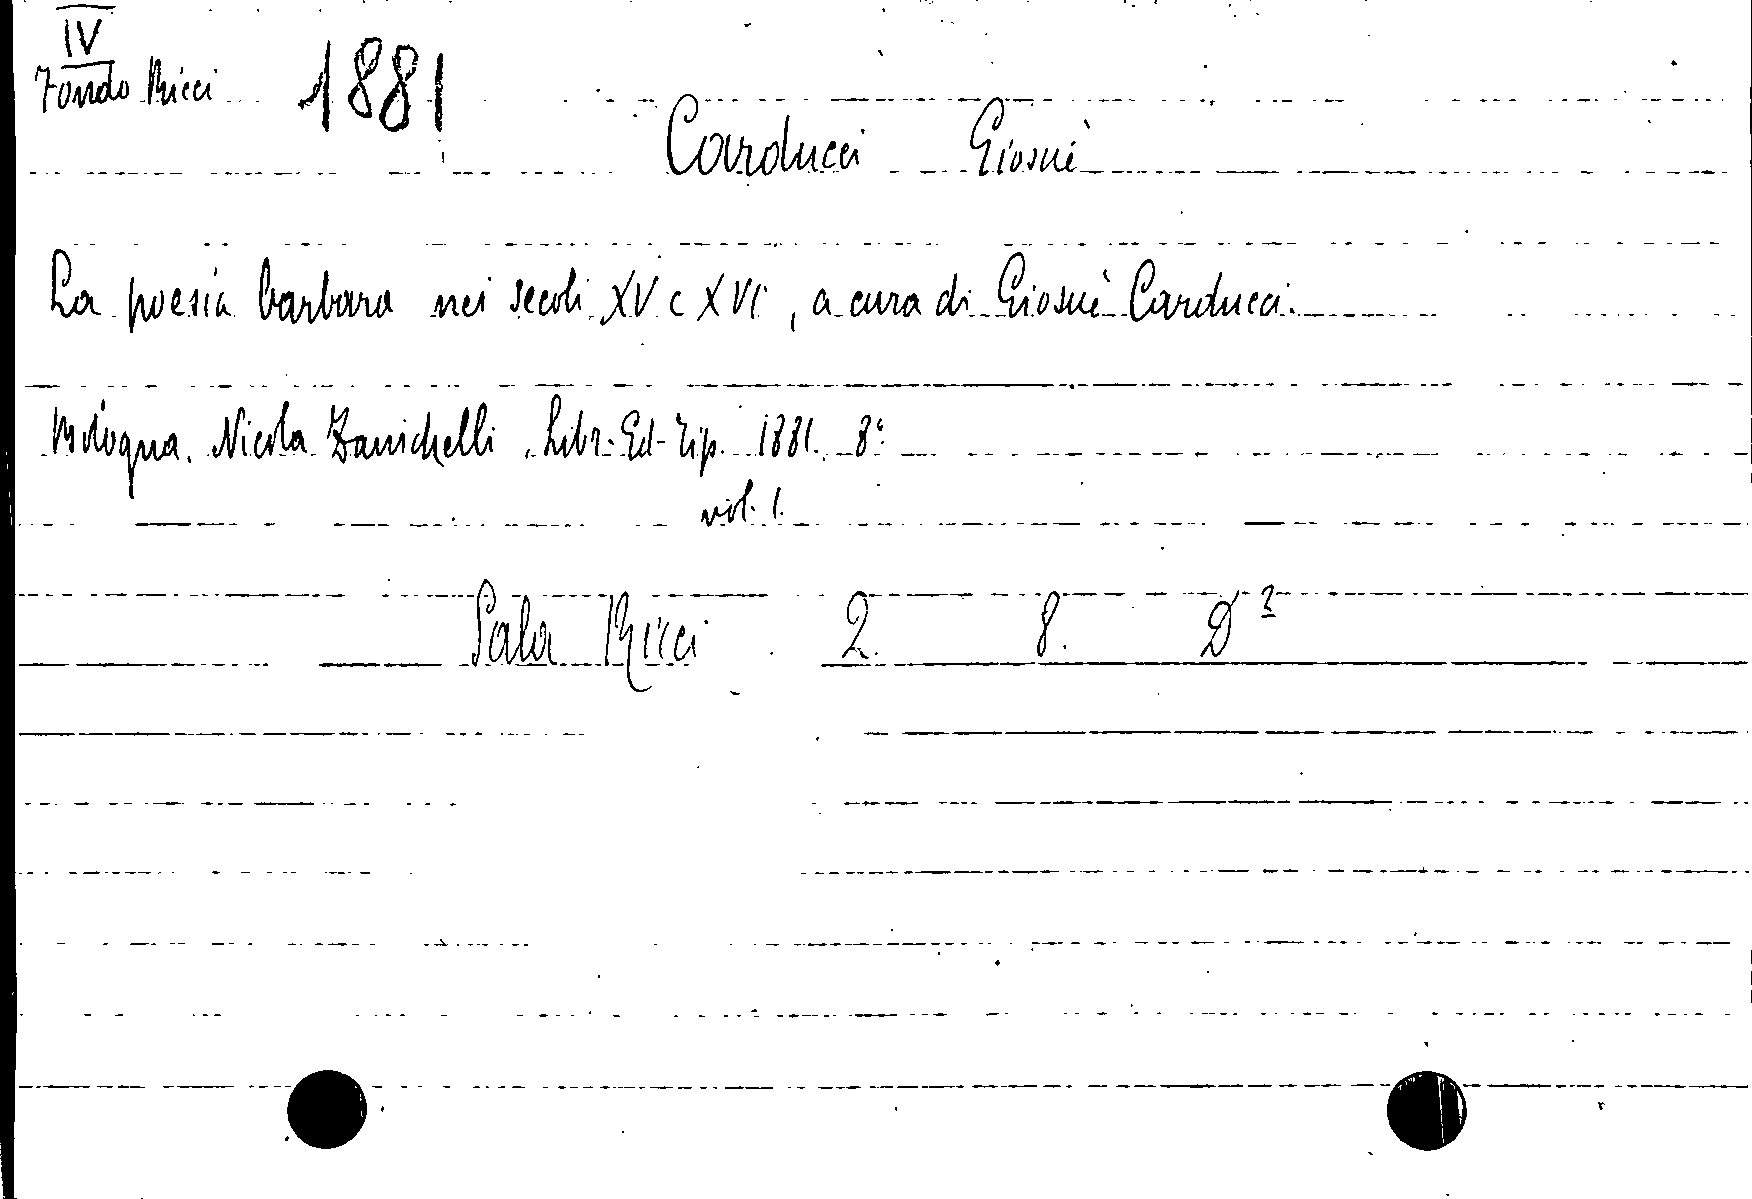 IV
Fondo Ricci 1881
Carducci Giosuè
La poesia barbara nei secoli XV e XVI, a cura di Giosuè Carducci.
Bologna. Nicola Zanichelli. Libr.-Ed-Tip. 1881. 8°
vol. 1.
Sala Ricci. 2. 8. D²